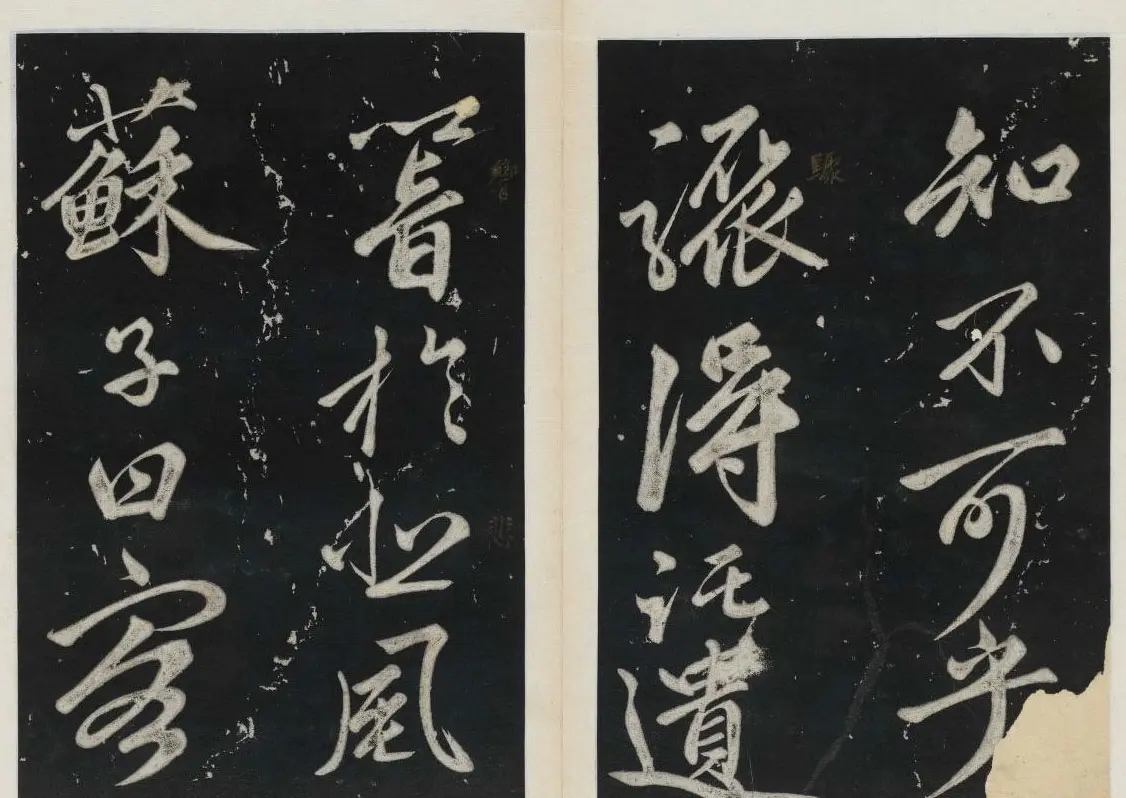 知不可乎
驟得託遺
響於悲風
蘇子曰客
驟
響
悲